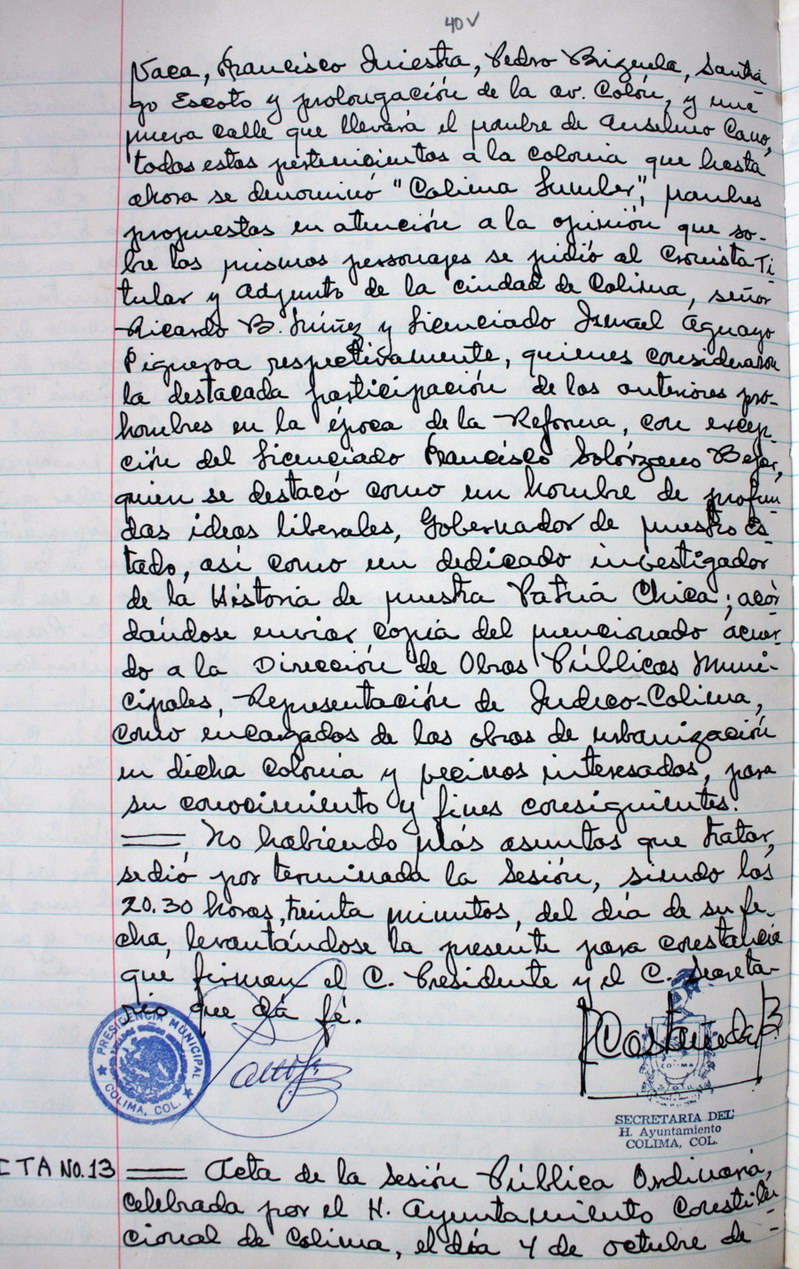 40v
Vaca, Francisco Iniestra, Pedro Brizuela, Santia
go Escoto y prolongación de la av. Colón, y una
nueva calle que llevará el nombre de Anselmo Cano,
todas estas pertenecientes a la colonia que hasta
ahora se denominó "Colima Sumber", nombres
propuestos en atención a la opinión que so-
bre los mismos personajes se pidió al Cronista Ti
tular y Adjunto de la ciudad de Colima, señor
Ricardo B. Núñez y Licenciado Ismael Aguayo
Figueroa respectivamente, quienes consideraron
la destacada participación de los anteriores pro-
hombres en la época de la Reforma, con excep-
ción del Licenciado Francisco Solórzano Bejar,
quien se destacó como un hombre de profun
das ideas liberales, Gobernador de nuestro Es-
tado, así como un dedicado investigador
de la Historia de nuestra Patria Chica; acor
dándose enviar copia del mencionado acuer-
do a la Dirección de Obras Públicas Muni-
cipales, Representación de Indeco-Colima,
como encargados de las obras de urbanización
en dicha colonia y vecinos interesados, para
su conocimiento y fines consiguientes.
No habiendo más asuntos que tratar,
se dió por terminada la Sesión, siendo las
20.30 horas, treinta minutos, del día de su fe-
cha, levantándose la presente para constancia
que firman el C. Presidente y el C. Secreta-
rio que dá fé.
PRESIDENCIA MUNICIPAL
COLIMA, COL.
Castañeda B.
COLIMA
SECRETARIA DEL
H. Ayuntamiento
COLIMA, COL.
CTA NO. 13 Acta de la Sesión Pública Ordinaria,
celebrada por el H. Ayuntamiento Constitu-
cional de Colima, el día 4 de octubre de